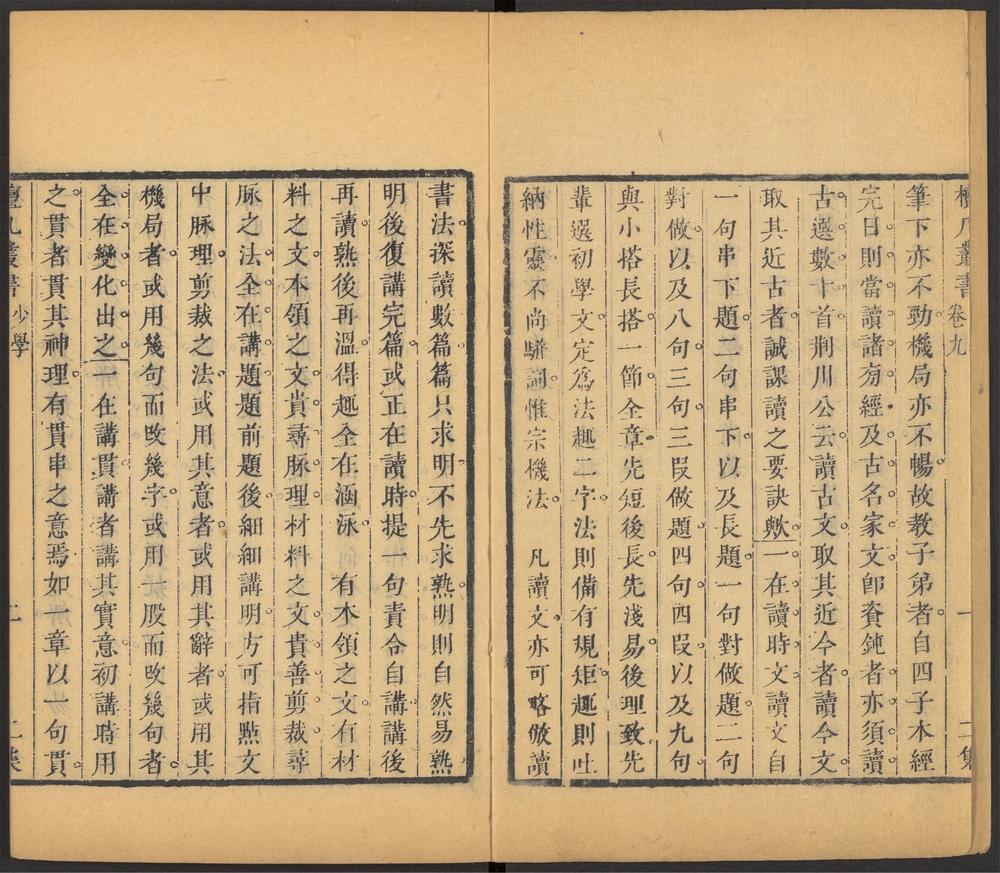 檀几叢書 卷九 一 二集
筆下亦不勁機局亦不暢故教子弟者自四子本經
完日則當讀諸旁經及古名家文卽資鈍者亦須讀
古選數十首荆川公云讀古文取其近今者讀今文
取其近古者誠課讀之要訣歟一在讀時文讀文自
一句串下題二句串下以及長題一句對做題二句
對做以及八句三句三段做題四句四段以及九句
與小搭長搭一節全章先短後長先淺易後理致先
輩選初學文定爲法趣二字法則備有規矩趣則吐
納性靈不尚駢詞惟宗機法 凡讀文亦可略倣讀
書法深讀數篇篇只求明不先求熟明則自然易熟
明後復講完篇或正在讀時提一句責令自講講後
再讀熟後再溫得趣全在涵泳 有本領之文有材
料之文本領之文貴尋脉理材料之文貴善剪裁尋
脉之法全在講題題前題後細細講明方可指點文
中脉理剪裁之法或用其意者或用其辭者或用其
機局者或用幾句而改幾字或用一股而改幾句者
全在變化出之一在講貫講者講其實意初講時用
之貫者貫其神理有貫串之意焉如一章以一句貫
檀几叢書 少學 二集